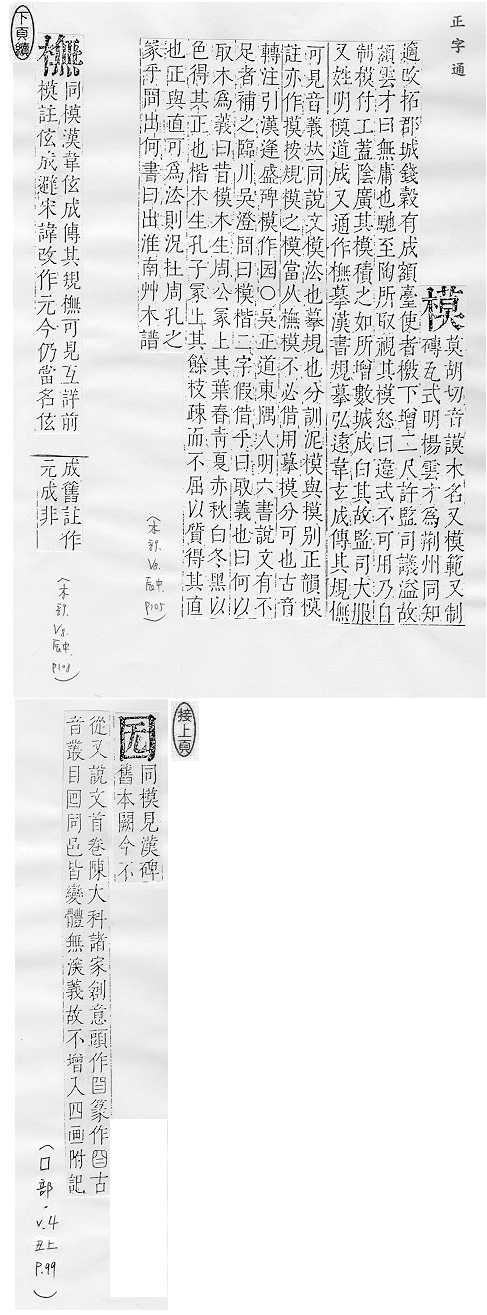 正字通
模
莫胡切音謨木名又模範又制
磚瓦式明楊雲才爲荆州同知
適改拓郡城錢穀有成額臺使者檄下增二尺許監司議溢故
額雲才曰無庸也馳至陶所取視其模怒曰違式不可用乃自
制模付工蓋陰廣其模積之如所增數城成白其故監司大服
又姓明模道成又通作橅摹漢書規摹弘遠韋玄成傳其規橅
可見音義𠀤同說文模法也摹規也分訓泥模與模別正韻模
註亦作模按規模之模當从橅模不必借用摹模分可也古音
轉注引漢逢盛碑模作囥〇吳正道東隅人明六書說文有不
足者補之臨川吳澄問曰模楷二字假借乎曰取義也曰何以
取木爲義曰昔模木生周公冢上其葉春靑夏赤秋白冬黑以
色得其正也楷木生孔子冢上其餘枝疎而不屈以質得其直
也正與直可爲法則況在周孔之
冢乎問出何書曰出淮南艸木譜
(木部. V8. 辰中. P105)
下頁續
橅
同模漢韋伭成傳其規橅可見互詳前
模註伭成避宋諱改作元今仍當名伭
成舊註作
元成非
(木部. V8. 辰中. P108)
接上頁
囥
同模見漢碑
舊本闕今不
從又說文首卷陳大科諸家創意頭作𦣻篆作𦣻古
首叢目囬同邑皆變體無深義故不增入四画附記
(口部. V.4 丑上 P.99)